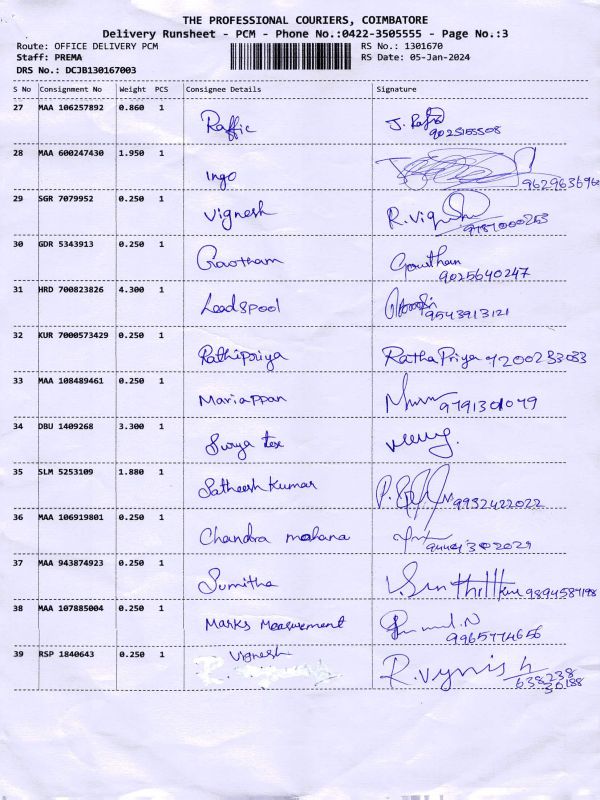 THE PROFESSIONAL COURIERS, COIMBATORE
Delivery Runsheet - PCM - Phone No.:0422-3505555 - Page No.:3
Route: OFFICE DELIVERY PCM RS No.: 1301670
Staff: PREMA RS Date: 05-Jan-2024
DRS No.: DCJB130167003
S No Consignment No Weight PCS Consignee Details Signature
27 MAA 106257892 0.860 1 Raffic J. Rafic
9025155508
28 MAA 600247430 1.950 1 Ingo
29 SGR 7079952 0.250 1 Vignesh R. Vignesh
30 GDR 5343913 0.250 1 Gaotham Gowtham
9025640247
31 HRD 700823826 4.300 1 Leadspool
9543913121
32 KUR 7000573429 0.250 1 Rathipriya Ratha Priya 9200233033
33 MAA 108489461 0.250 1 Mariappan 9791301079
34 DBU 1409268 3.300 1 Surya tex
35 SLM 5253109 1.880 1 Satheesh Kumar 9932422022
36 MAA 106919801 0.250 1 Chandra mohana
37 MAA 943874923 0.250 1 Sumitha V. Senthilkumar 9894587198
38 MAA 107885004 0.250 1 Marks Measurement
9965774656
39 RSP 1840643 0.250 1 Vignesh R. Vignish
638238
30188